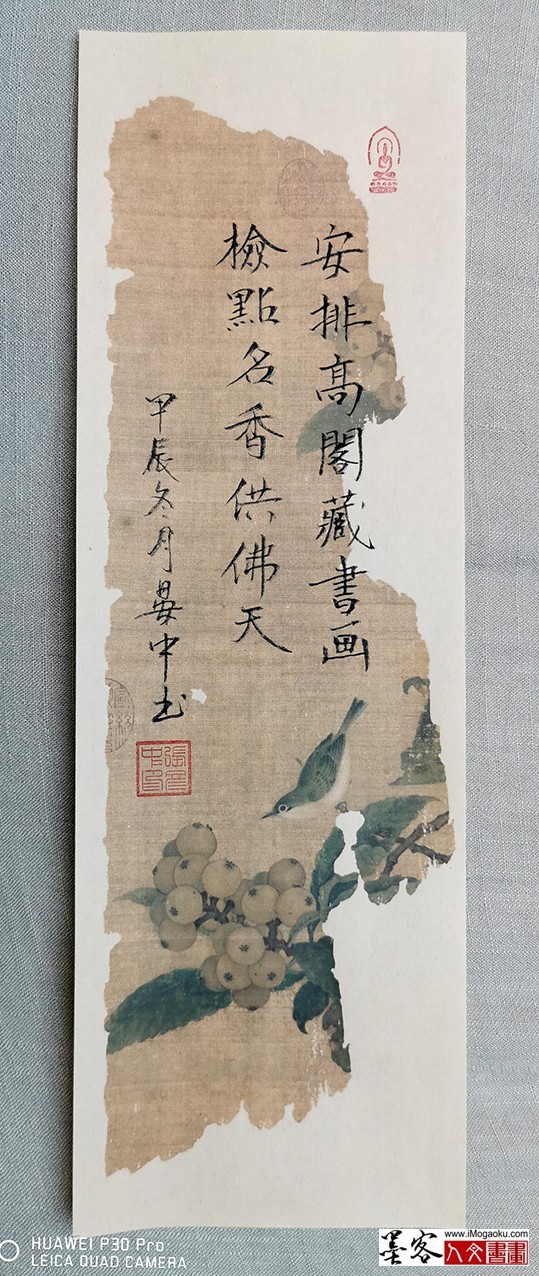 安排高閣藏書画
檢點名香供佛天
甲辰冬月晏中书
HUAWEI P30 Pro
LEICA QUAD CAMERA
墨客
www.iMogaoku.com
人文書畫